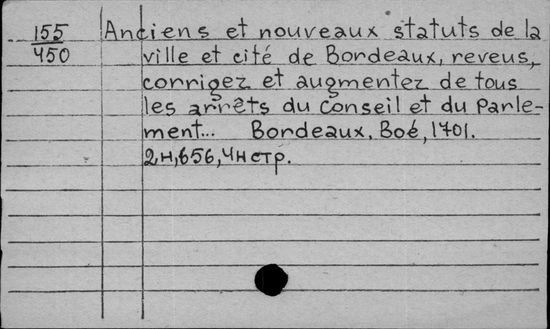 155 Anciens et nouveaux statuts de la
450 ville et cité de Bordeaux, reveus,
corrigez et augmentez de tous
les arrêts du Conseil et du Parle-
ment... Bordeaux, Boé, 1701.
2н, 656, 4н стр.